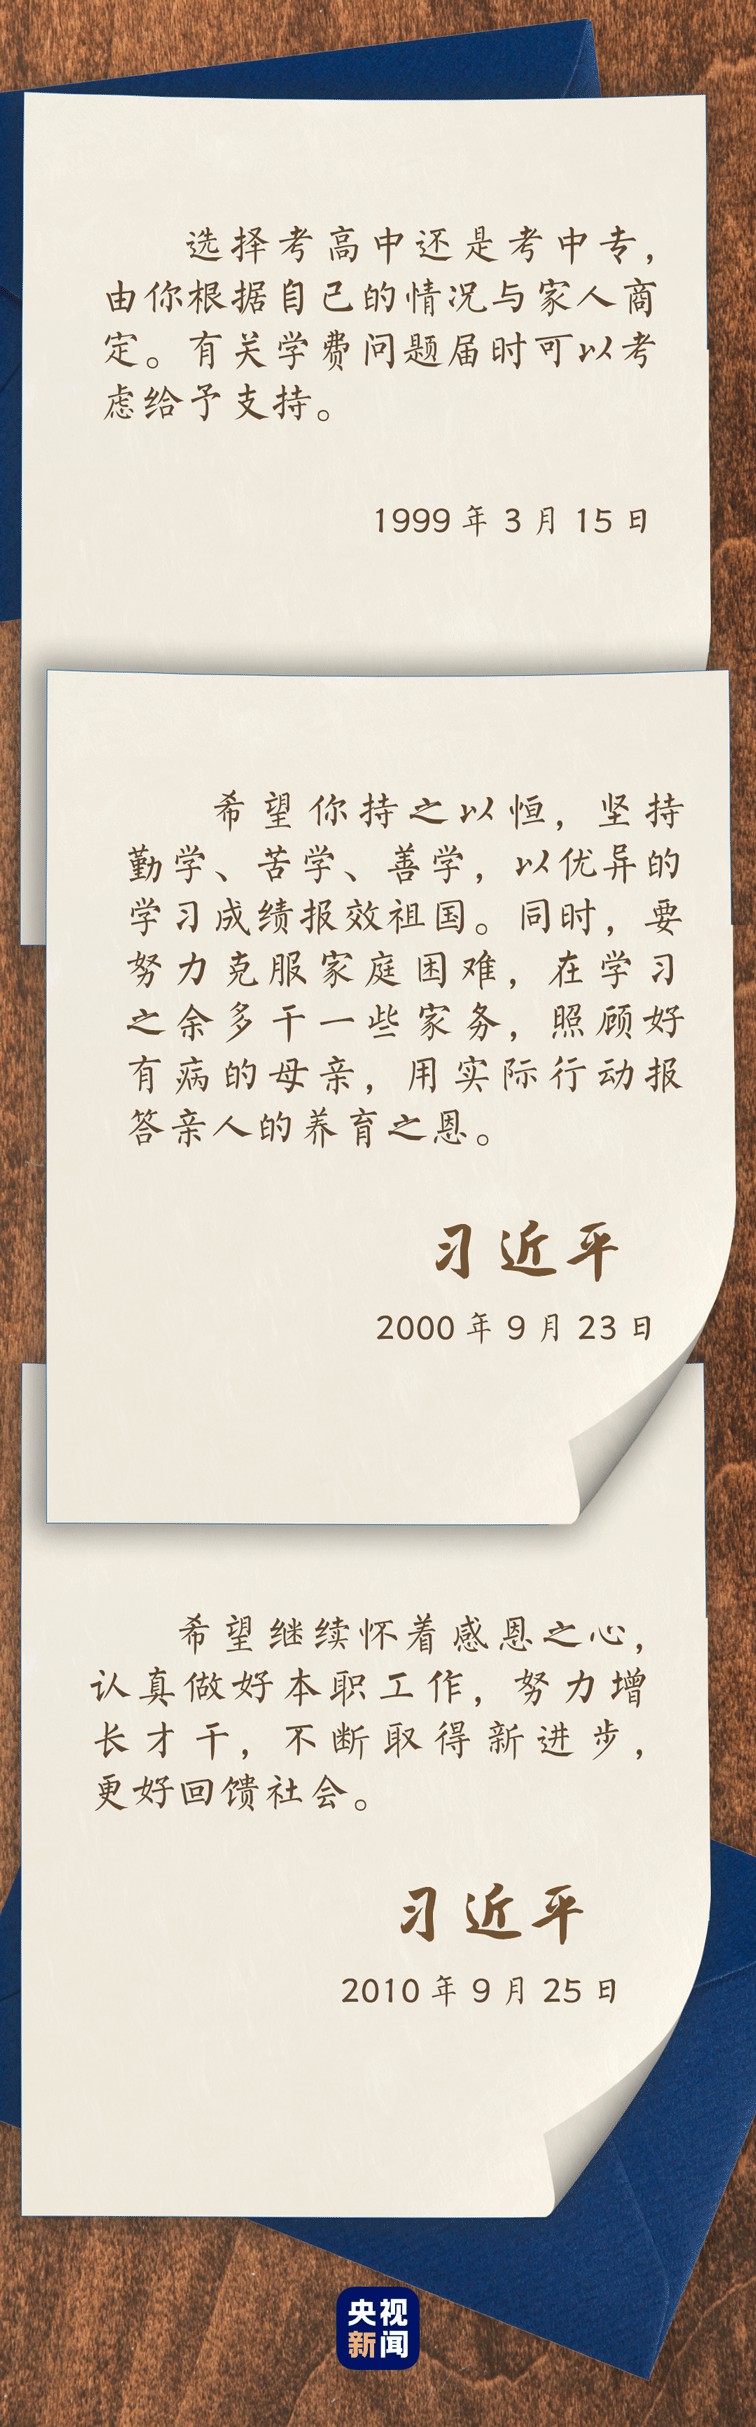 选择考高中还是考中专，
由你根据自己的情况与家人商
定。有关学费问题届时可以考
虑给予支持。
1999年3月15日
希望你持之以恒，坚持
勤学、苦学、善学，以优异的
学习成绩报效祖国。同时，要
努力克服家庭困难，在学习
之余多干一些家务，照顾好
有病的母亲，用实际行动报
答亲人的养育之恩。
习近平
2000年9月23日
希望继续怀着感恩之心，
认真做好本职工作，努力增
长才干，不断取得新进步，
更好回馈社会。
习近平
2010年9月25日
央视
新闻